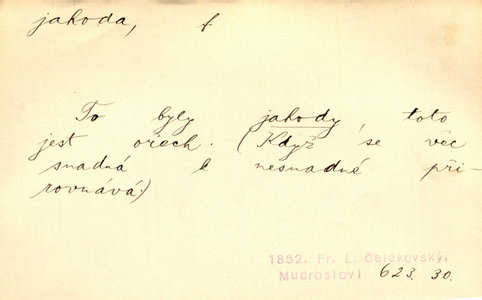 jahoda, f.
To byly jahody, toto
jest ořech. (Když se věc
snadná k nesnadné při-
rovnává.)
1852. Fr. L. Čelakovský,
Mudrosloví 623. 30.